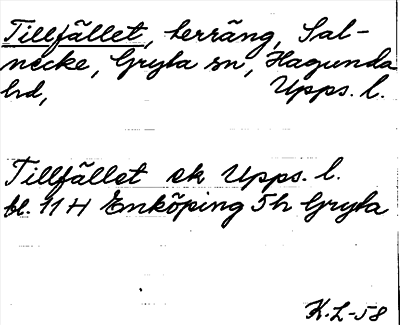 Tillfället, terräng, Sal-
necke, Gryta sn, Hagunda
hd, Upps. l.
Tillfället ek Upps. l.
bl. 11 H Enköping 5h Gryta
K.L-58